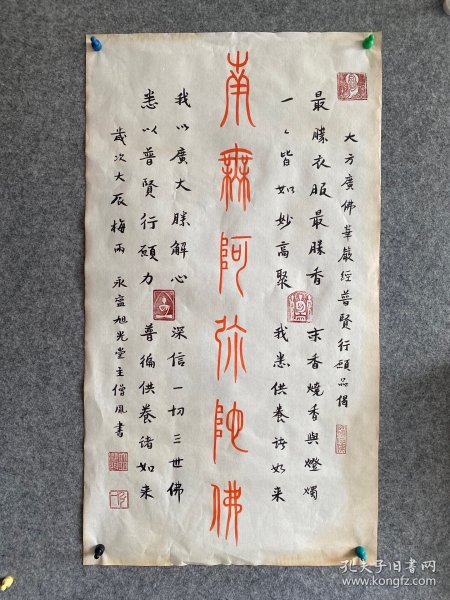 大方廣佛華嚴經普賢行願品偈
最勝衣服最勝香 末香燒香與燈燭
一々皆如妙高聚 我悉供養諸如来
南無阿弥陀佛
我以廣大勝解心 深信一切三世佛
悉以普賢行願力 普徧供養諸如来
歲次大辰梅雨 永寧旭光堂主僧凨書
孔夫子旧书网
www.kongfz.com